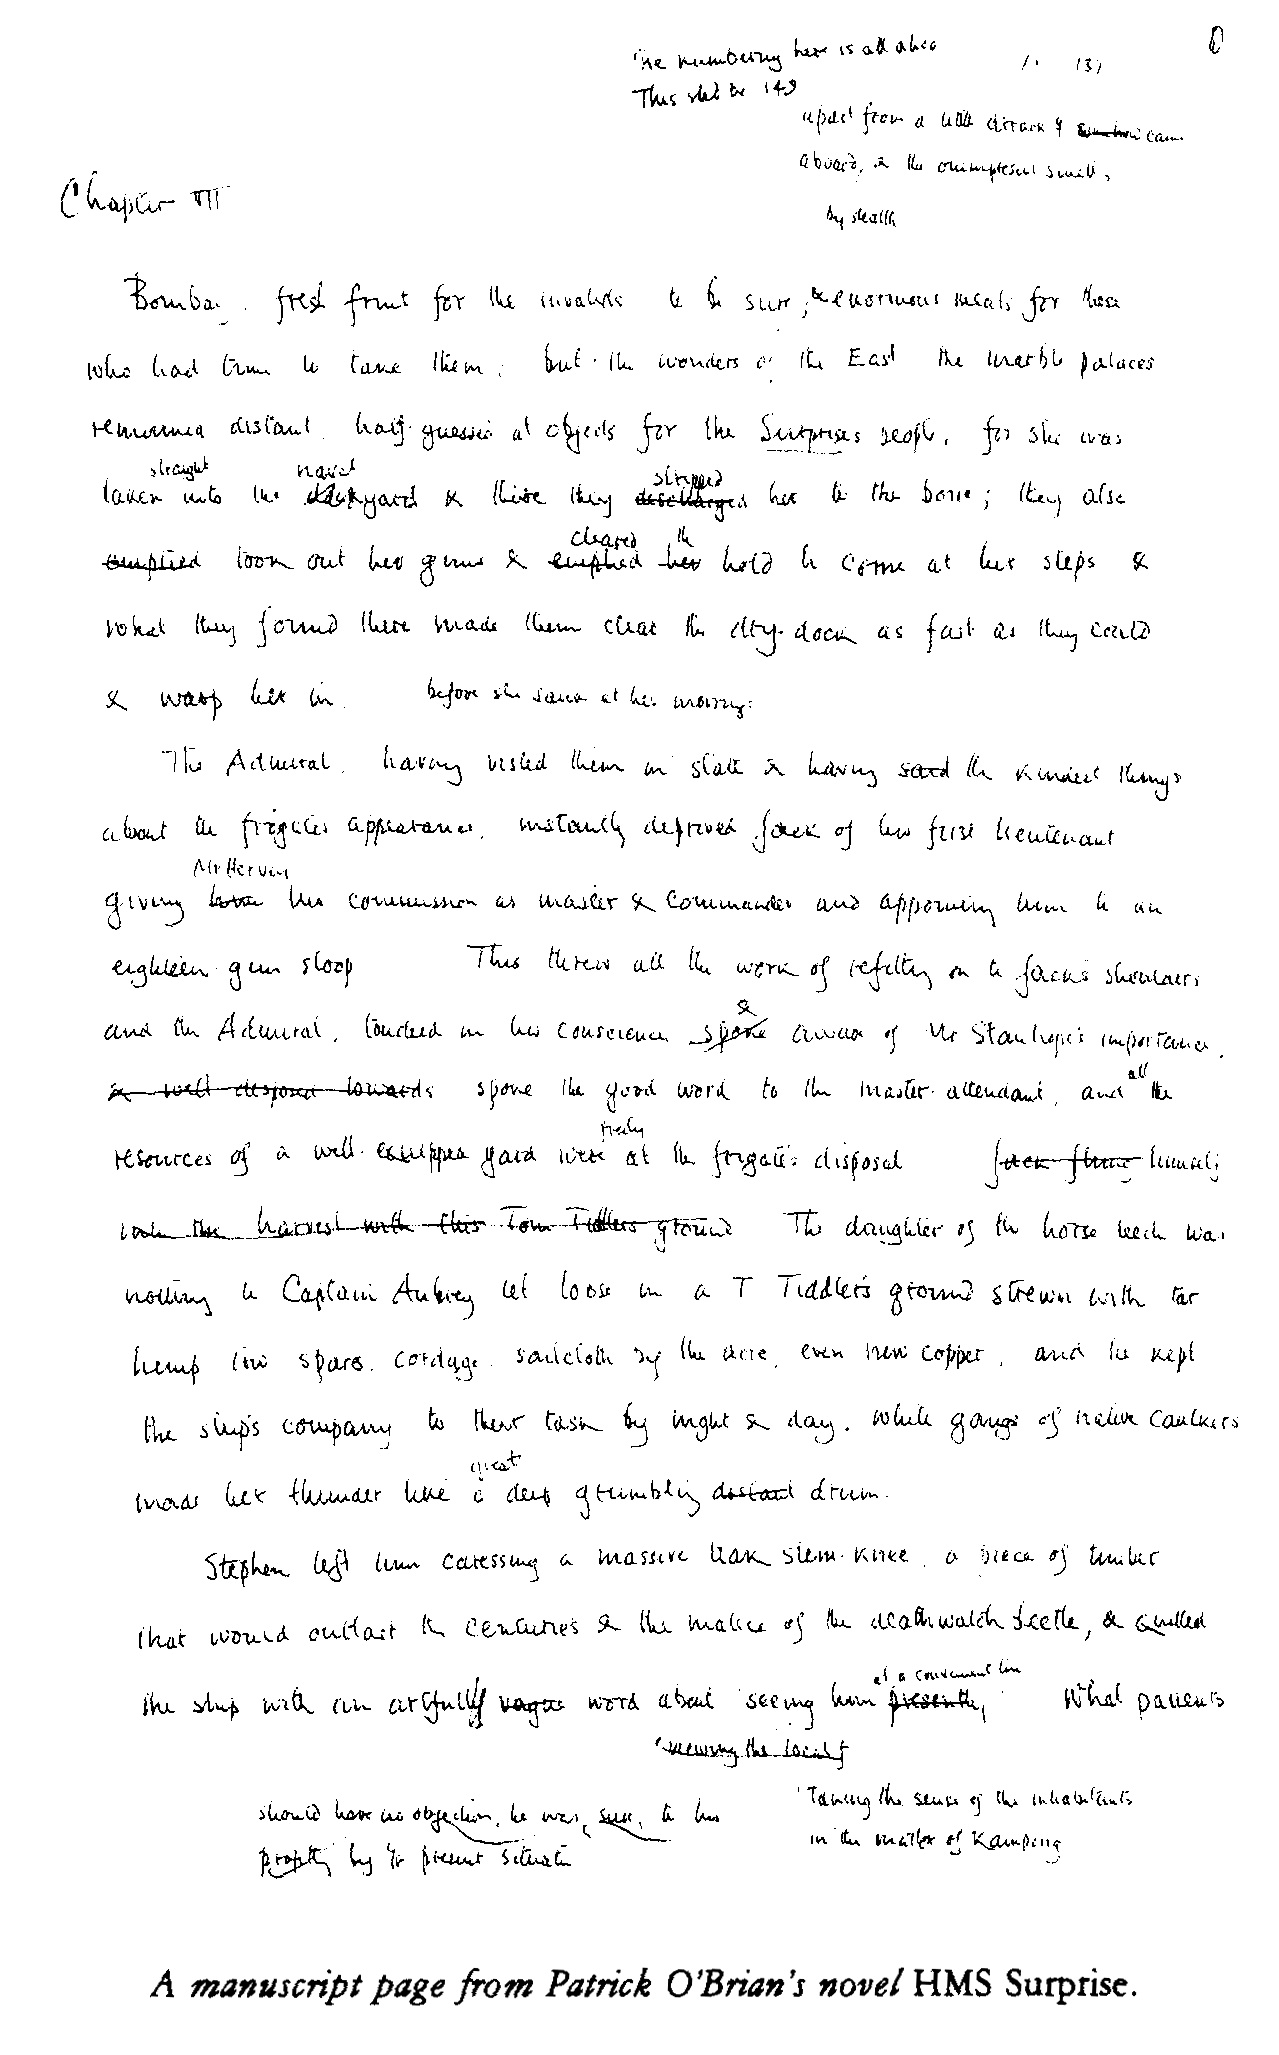 The numbering here is all also
This shd be 149
131
apart from a little attack of came
aboard, & the omnipresent smell,
by stealth
Chapter VII
Bombay. fresh fruit for the invalids to be sure, & enormous meals for those
who had time to take them; but the wonders of the East the marble palaces
remained distant half-guessed at objects for the Surprises people, for she was
straight naval stripped
taken into the dockyard & there they discharged her to the bone; they also
cleared the
emptied took out her guns & emptied her hold to come at her steps &
what they found there made them clear the dry-dock as fast as they could
& warp her in before she sank at her moorings
The Admiral, having visited them in state & having said the kindest things
about the frigates appearance, instantly deprived Jack of his first lieutenant
Mr Hervey
giving him his commission as master & commander and appointing him to an
eighteen-gun sloop This threw all the work of refitting on to Jack's shoulders
&
and the Admiral, touched in his conscience spoke aware of Mr Stanhope's importance
& well disposed towards spoke the good word to the master-attendant, and all the
freely
resources of a well-equipped yard were at the frigate's disposal Jack flung himself
into the harvest with this Tom Tidlers ground The daughter of the horse leech was
nothing to Captain Aubrey let loose in a T Tiddler's ground strewn with tar
hemp tow spars, cordage, sailcloth by the acre, even new copper, and he kept
the ship's company to their task by night & day, while gangs of native caulkers
great
made her thunder like a deep grumbling distant drum.
Stephen left him caressing a massive teak stem-knee, a piece of timber
that would outlast the centuries & the malice of the deathwatch beetle, & quitted
at a convenient time
the ship with an artfully vague word about 'seeing him presently, What patients
'viewing the locals
should have no objection, he was sure, to his
'Taking the sense of the inhabitants
in the matter of Kamping
present situatn
A manuscript page from Patrick O'Brian's novel HMS Surprise.